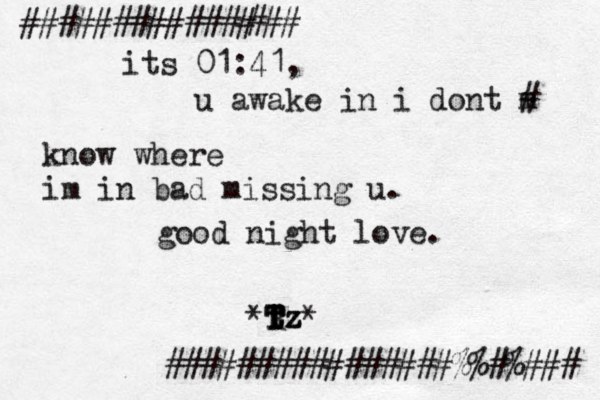 ###############
its 01:41,
u awake in i dont #
know where
im in bad missing u.
good night love.
*Tz*
################%%#%###